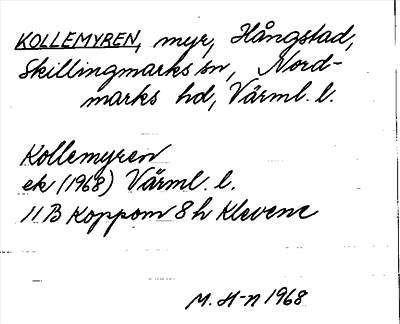 KOLLEMYREN, myr, Hångstad,
Skillingmarks sn, Nord-
marks hd, Värml. l.
Kollemyren
ek (1968) Värml. l.
11 B Koppom 8 h Klevene
M. H-n 1968